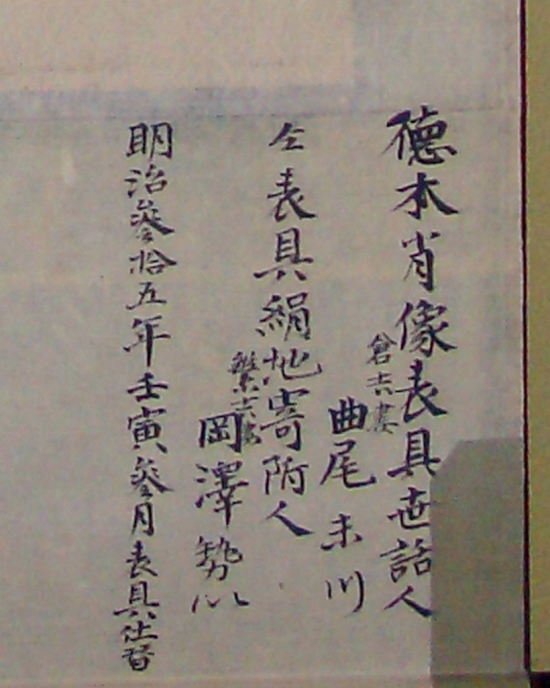 德本肖像表具世話人
倉吉妻
曲尾未川
仝表具絹地寄附人
岡澤勢以
明治参拾五年壬寅参月表具仕替